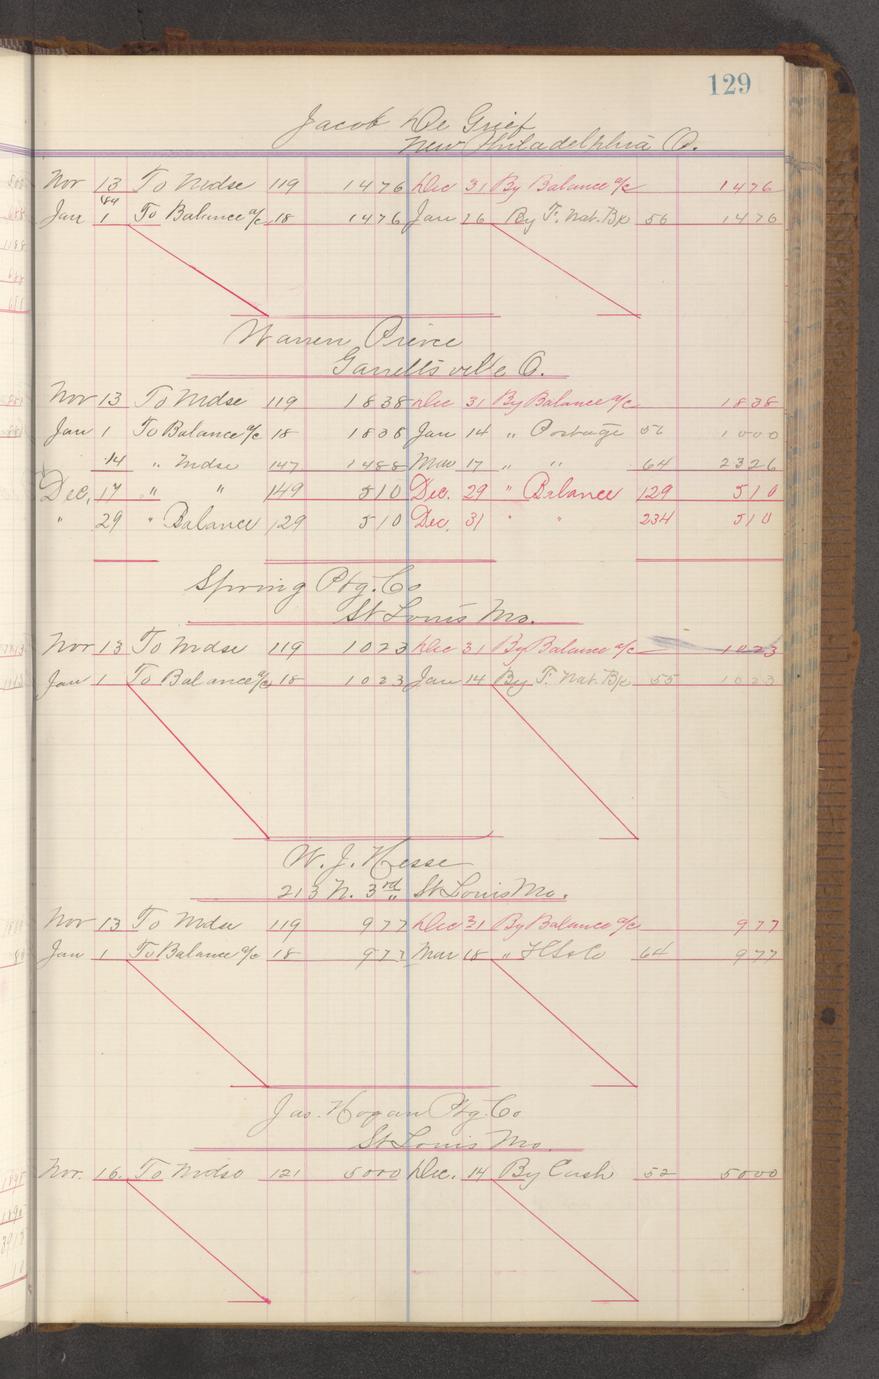 129
Jacob De Grief
New Philadelphia O.
Nov 13 To Mdse 119 1476 Dec 31 By Balance a/c 1476
Jan 1 To Balance a/c 18 1476 Jan 26 By F. Nat. Bk 56 1476
Warren Pierce
Garrettsville O.
Nov 13 To Mdse 119 1838 Dec 31 By Balance a/c 1838
Jan 1 To Balance a/c 18 1838 Jan 14 " Postage 56 1000
14 " Mdse 147 1488 Mar 17 " " 64 2326
Dec. 17 " " 149 510 Dec. 29 " Balance 129 510
" 29 " Balance 129 510 Dec. 31 " " 234 510
Spring Ptg. Co
St Louis Mo.
Nov 13 To Mdse 119 1023 Dec 31 By Balance a/c 1023
Jan 1 To Balance a/c 18 1023 Jan 14 By F. Nat. Bk 55 1023
W. J. Hesse
213 N. 3rd St Louis Mo.
Nov 13 To Mdse 119 977 Dec 31 By Balance a/c 977
Jan 1 To Balance a/c 18 977 Mar 18 " 64 977
Jas. Hogan Ptg. Co
St Louis Mo.
Nov. 16. To Mdse 121 5000 Dec. 14 By Cash 52 5000